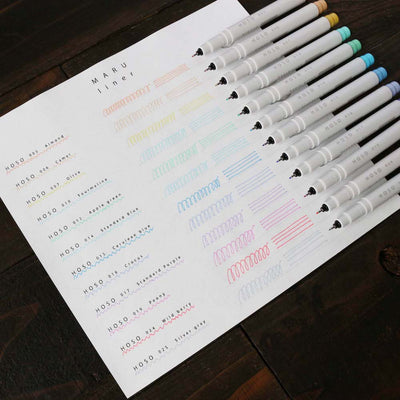 MARU
liner
HOSO 003 Almond
HOSO 004 Camel
HOSO 007 Olive
HOSO 010 Tourmaline
HOSO 012 Apple green
HOSO 014 Standard blue
HOSO 016 Cerulean blue
HOSO Crocus
HOSO 017 Standard purple
HOSO Peony
HOSO 024 Wild berry
HOSO 025 Silver gray